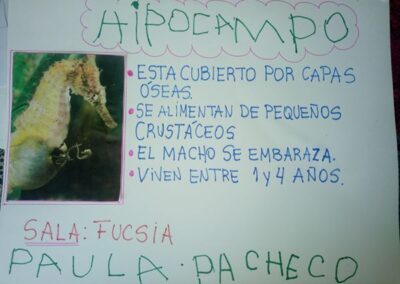 HIPOCAMPO
• ESTA CUBIERTO POR CAPAS
OSEAS.
• SE ALIMENTAN DE PEQUEÑOS
CRUSTÁCEOS
• EL MACHO SE EMBARAZA.
• VIVEN ENTRE 1 y 4 AÑOS.
SALA: FUCSIA
PAULA • PACHECO